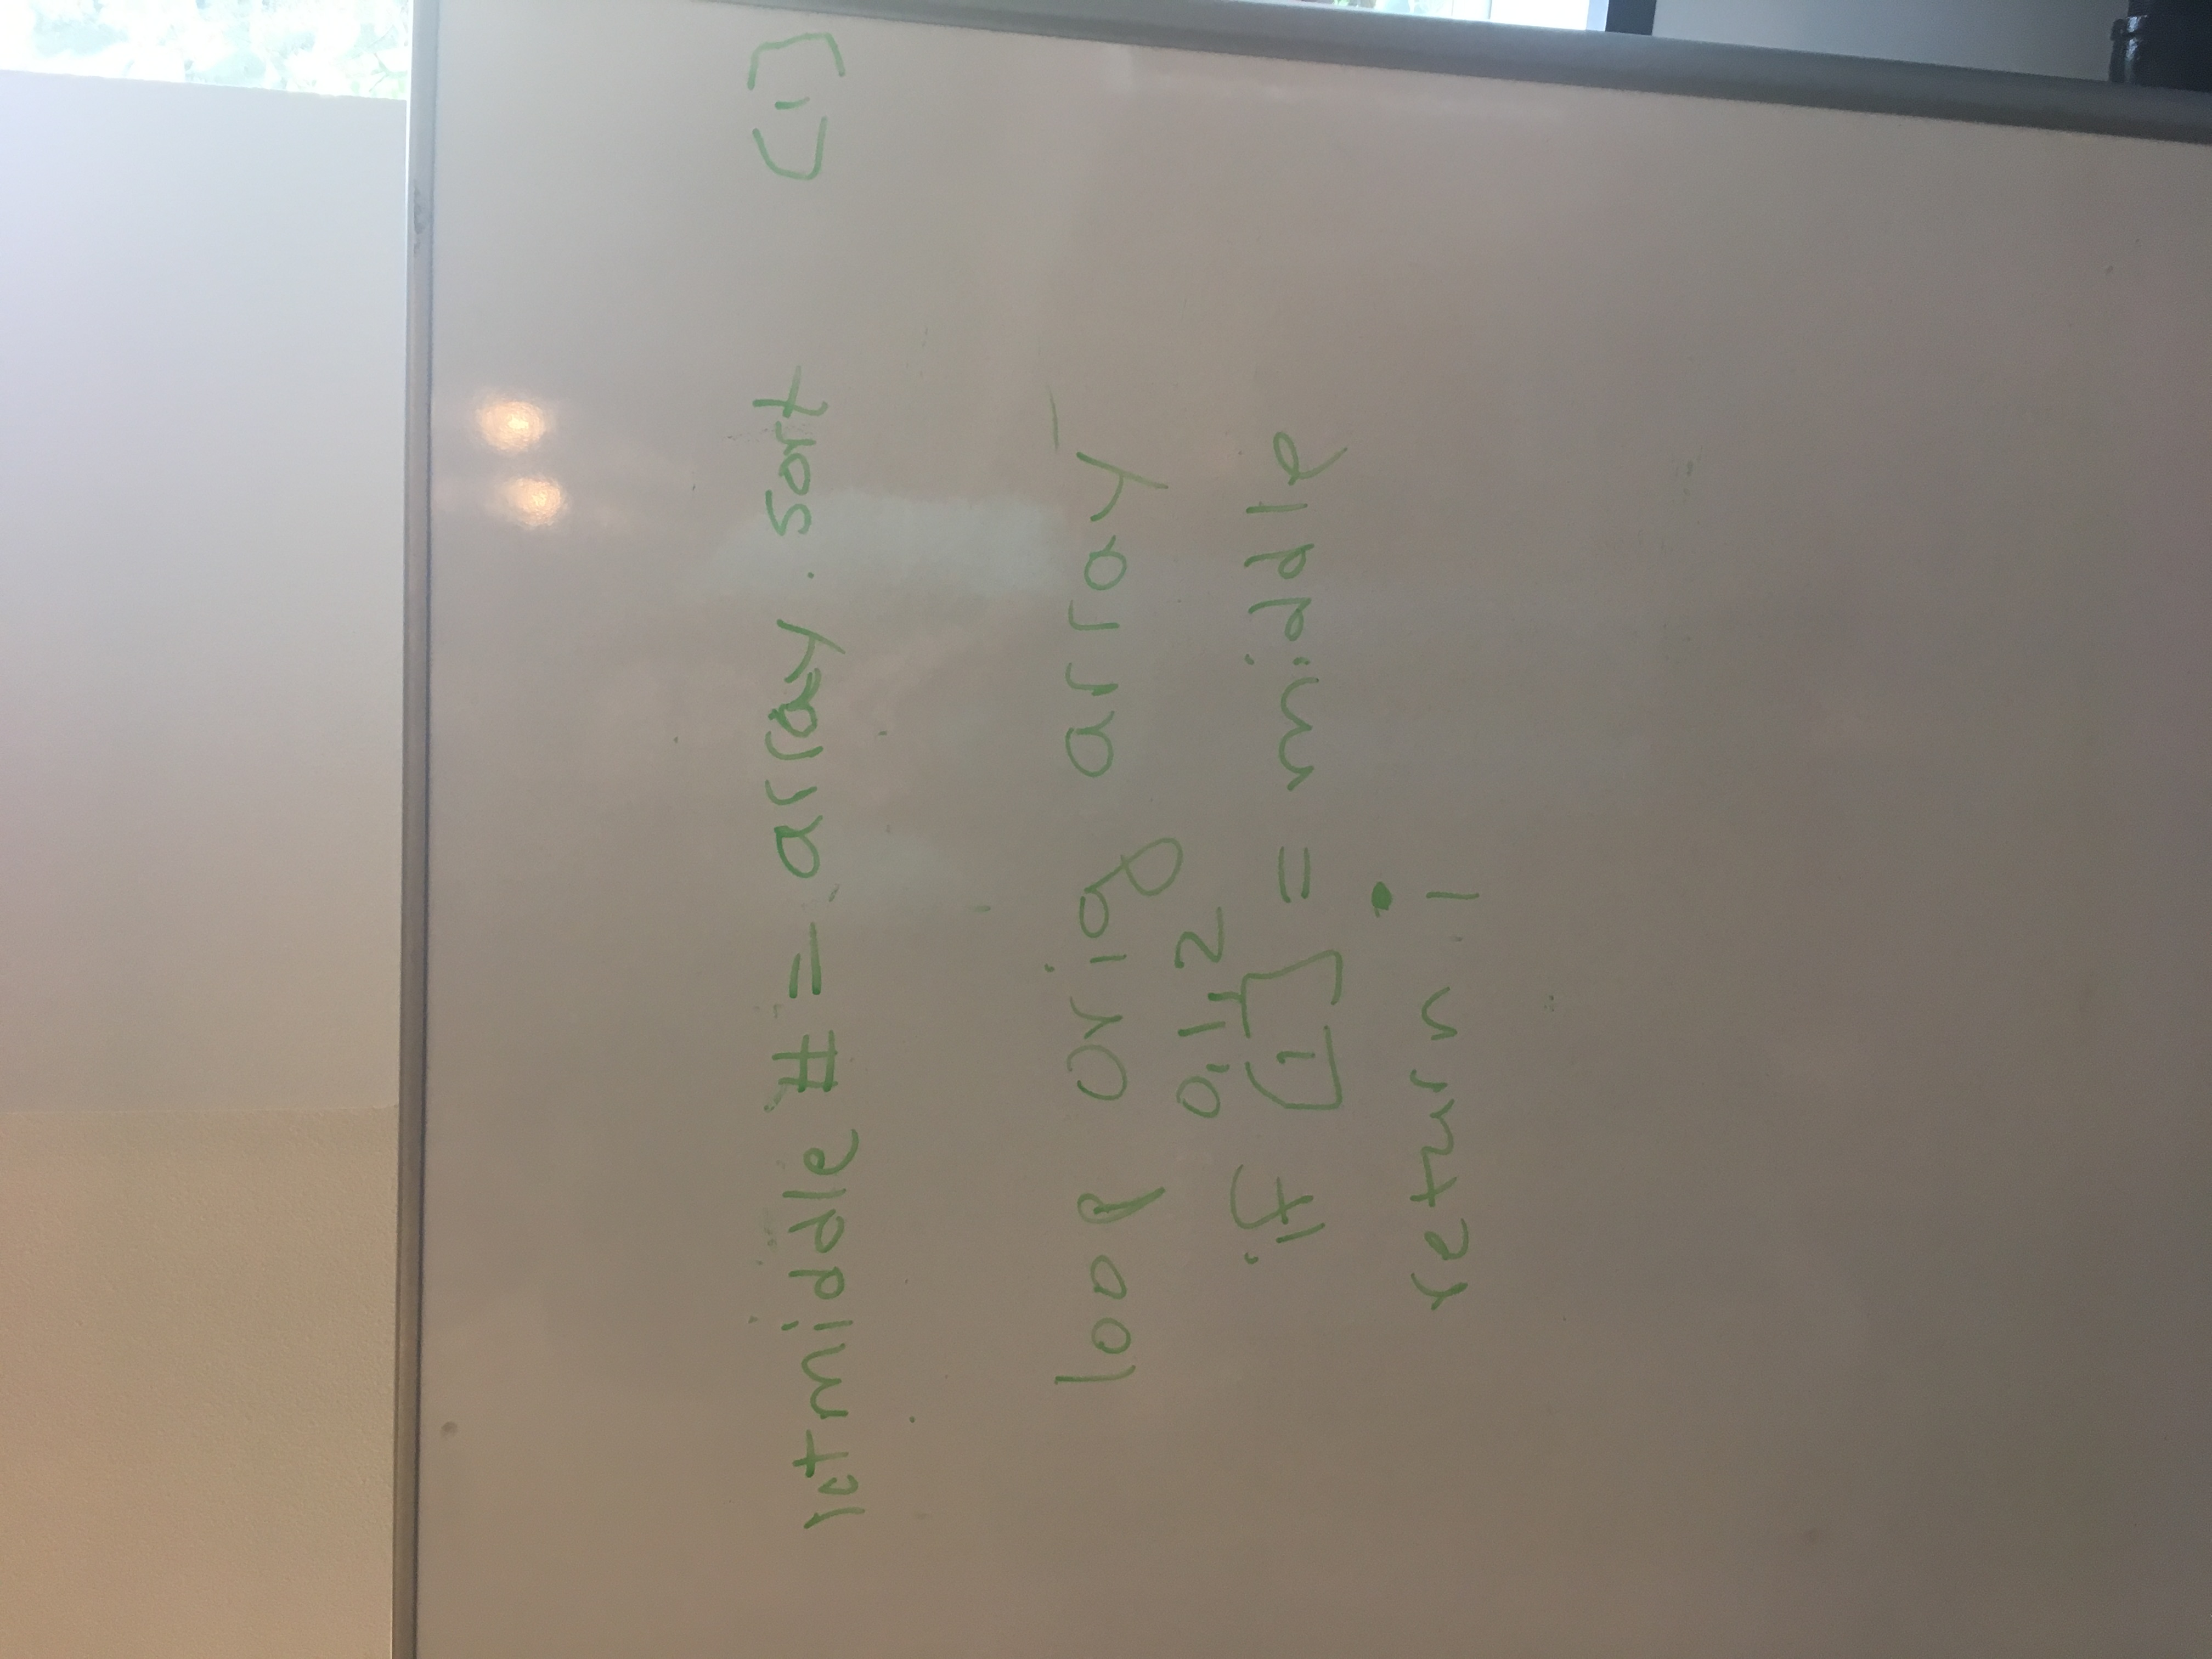 let middle # = array.sort [1]
loop orig array
0,1,2
if [1] = middle
return i